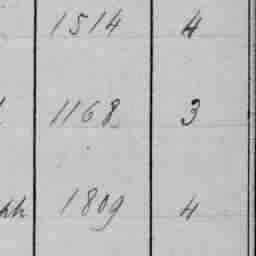 1514 4
1168 3
1809 4